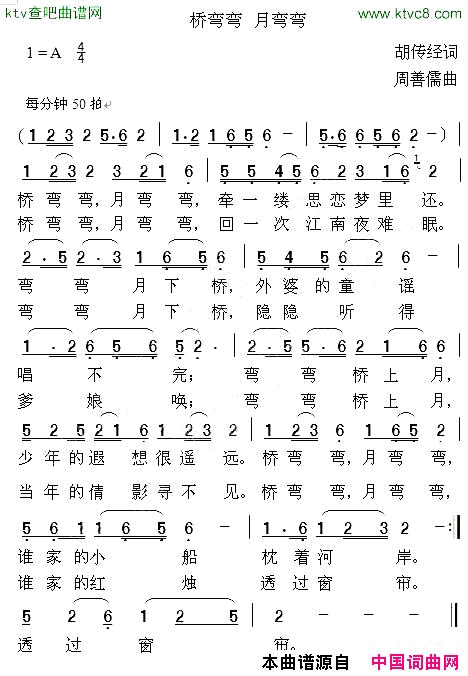 ktv查吧曲谱网
www.ktvc8.com
桥弯弯 月弯弯
1=A 4/4
胡传经词
周善儒曲
每分钟50拍
(1 2 3 5·6 2 | 1·2 1 6 5 6 - | 5·6 6 5 6 2 - )
1 2 3 2 3 2 1 6 | 5 5 4 5 6 2 3 1 6 1
桥弯弯,月弯弯,牵一缕思恋梦里还。
桥弯弯,月弯弯,回一次江南夜难眠。
2·5 3·2 1 6 5 6 | 5 4 5 1 6 2 6
弯弯月下桥,外婆的童谣
弯弯月下桥,隐隐听得
1·2 6 5·6 5 2· | 2·5 5·6 1 6 5
唱不完;弯弯桥上月,
爹娘唤;弯弯桥上月,
5 1 2 1 6 1 2 3 2 | 1 2 3 2 1 6
少年的遐想很遥远。桥弯弯,月弯弯,
当年的倩影寻不见。桥弯弯,月弯弯,
5 6 1 1 6 5 6 - | 1·6 1 2 3 2 -
谁家的小船枕着河岸。
谁家的红烛透过窗帘。
5 5 2 2 6 | 1 - - -
透过窗帘。
本曲谱源自 中国词曲网